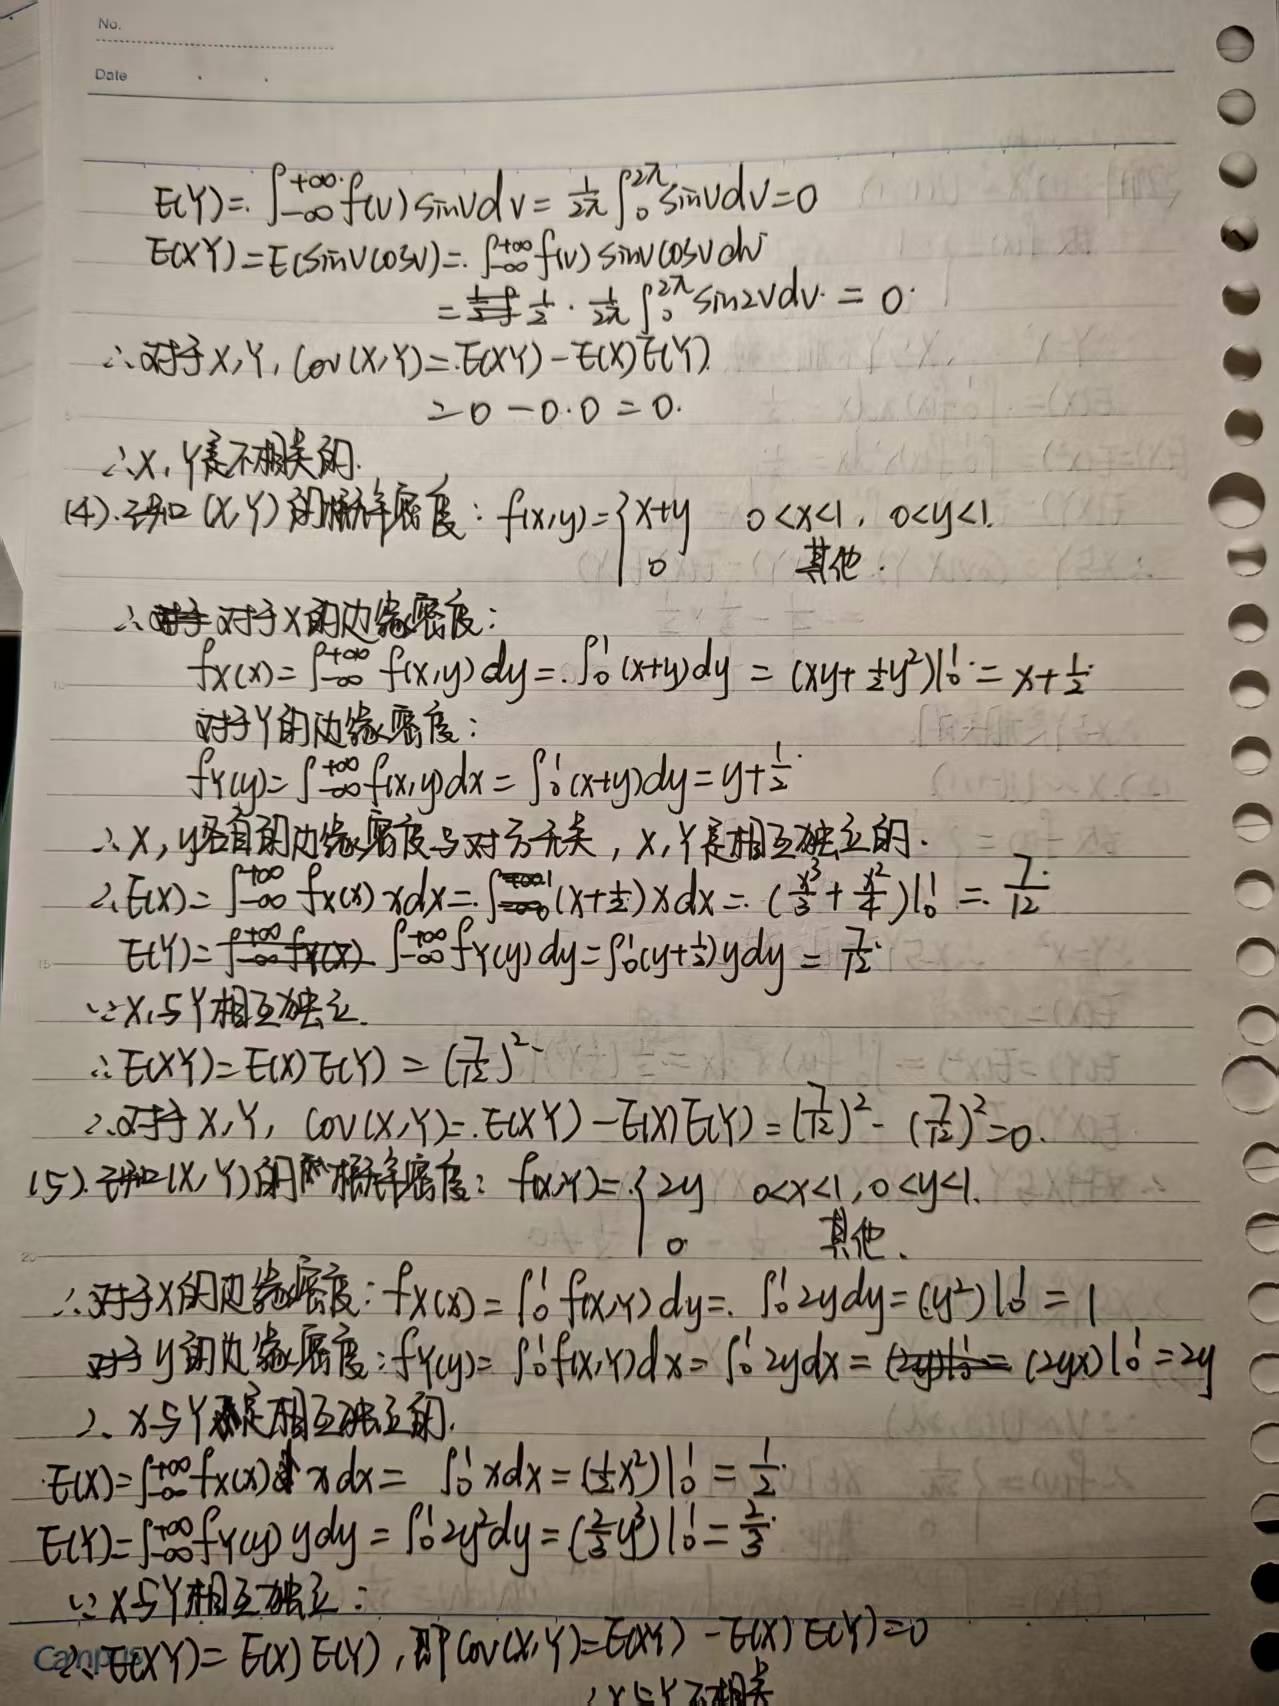 No.
Date
E(Y)=∫_{-∞}^{+∞} f(v) sinv dv = 1/2π ∫_0^{2π} sinv dv=0
E(XY)=E(sinv cosv)=∫_{-∞}^{+∞} f(v) sinv cosv dv
= 1/2 · 1/2π ∫_0^{2π} sin2v dv = 0
∴对于X,Y, Cov(X,Y)=E(XY)-E(X)E(Y)
=0-0·0=0.
∴X,Y是不相关的.
(4).已知(X,Y)的概率密度: f(x,y)={x+y 0<x<1, 0<y<1.
0 其他.
∴对于X的边缘密度:
fX(x)=∫_{-∞}^{+∞} f(x,y)dy=∫_0^1 (x+y)dy = (xy+1/2y²)|_0^1 = x+1/2
对于Y的边缘密度:
fY(y)=∫_{-∞}^{+∞} f(x,y)dx=∫_0^1 (x+y)dy=y+1/2
∴X,y各自的边缘密度与对方无关, X,Y是相互独立的.
∴E(X)=∫_{-∞}^{+∞} fX(x) xdx=∫_0^1 (x+1/2)xdx=(x³/3+x²/4)|_0^1=7/12
E(Y)=∫_{-∞}^{+∞} fY(y)dy=∫_0^1 (y+1/2)ydy=7/12
∵X与Y相互独立.
∴E(XY)=E(X)E(Y)=(7/12)²
∴对于X,Y, Cov(X,Y)=E(XY)-E(X)E(Y)=(7/12)²-(7/12)²=0.
(5).已知(X,Y)的概率密度: f(x,Y)={2y 0<x<1,0<y<1.
0 其他.
∴对于X的边缘密度: fX(x)=∫_0^1 f(x,Y)dy=∫_0^1 2ydy=(y²)|_0^1=1
对于y的边缘密度: fY(y)=∫_0^1 f(x,Y)dx=∫_0^1 2ydx=(2yx)|_0^1=2y
∴X与Y是相互独立的.
E(X)=∫_{-∞}^{+∞} fX(x) xdx=∫_0^1 xdx=(1/2x²)|_0^1=1/2
E(Y)=∫_{-∞}^{+∞} fY(y) ydy=∫_0^1 2y²dy=(2/3y³)|_0^1=2/3
∵X与Y相互独立:
∴E(XY)=E(X)E(Y),即Cov(X,Y)=E(XY)-E(X)E(Y)=0
∴X与Y不相关
Campus